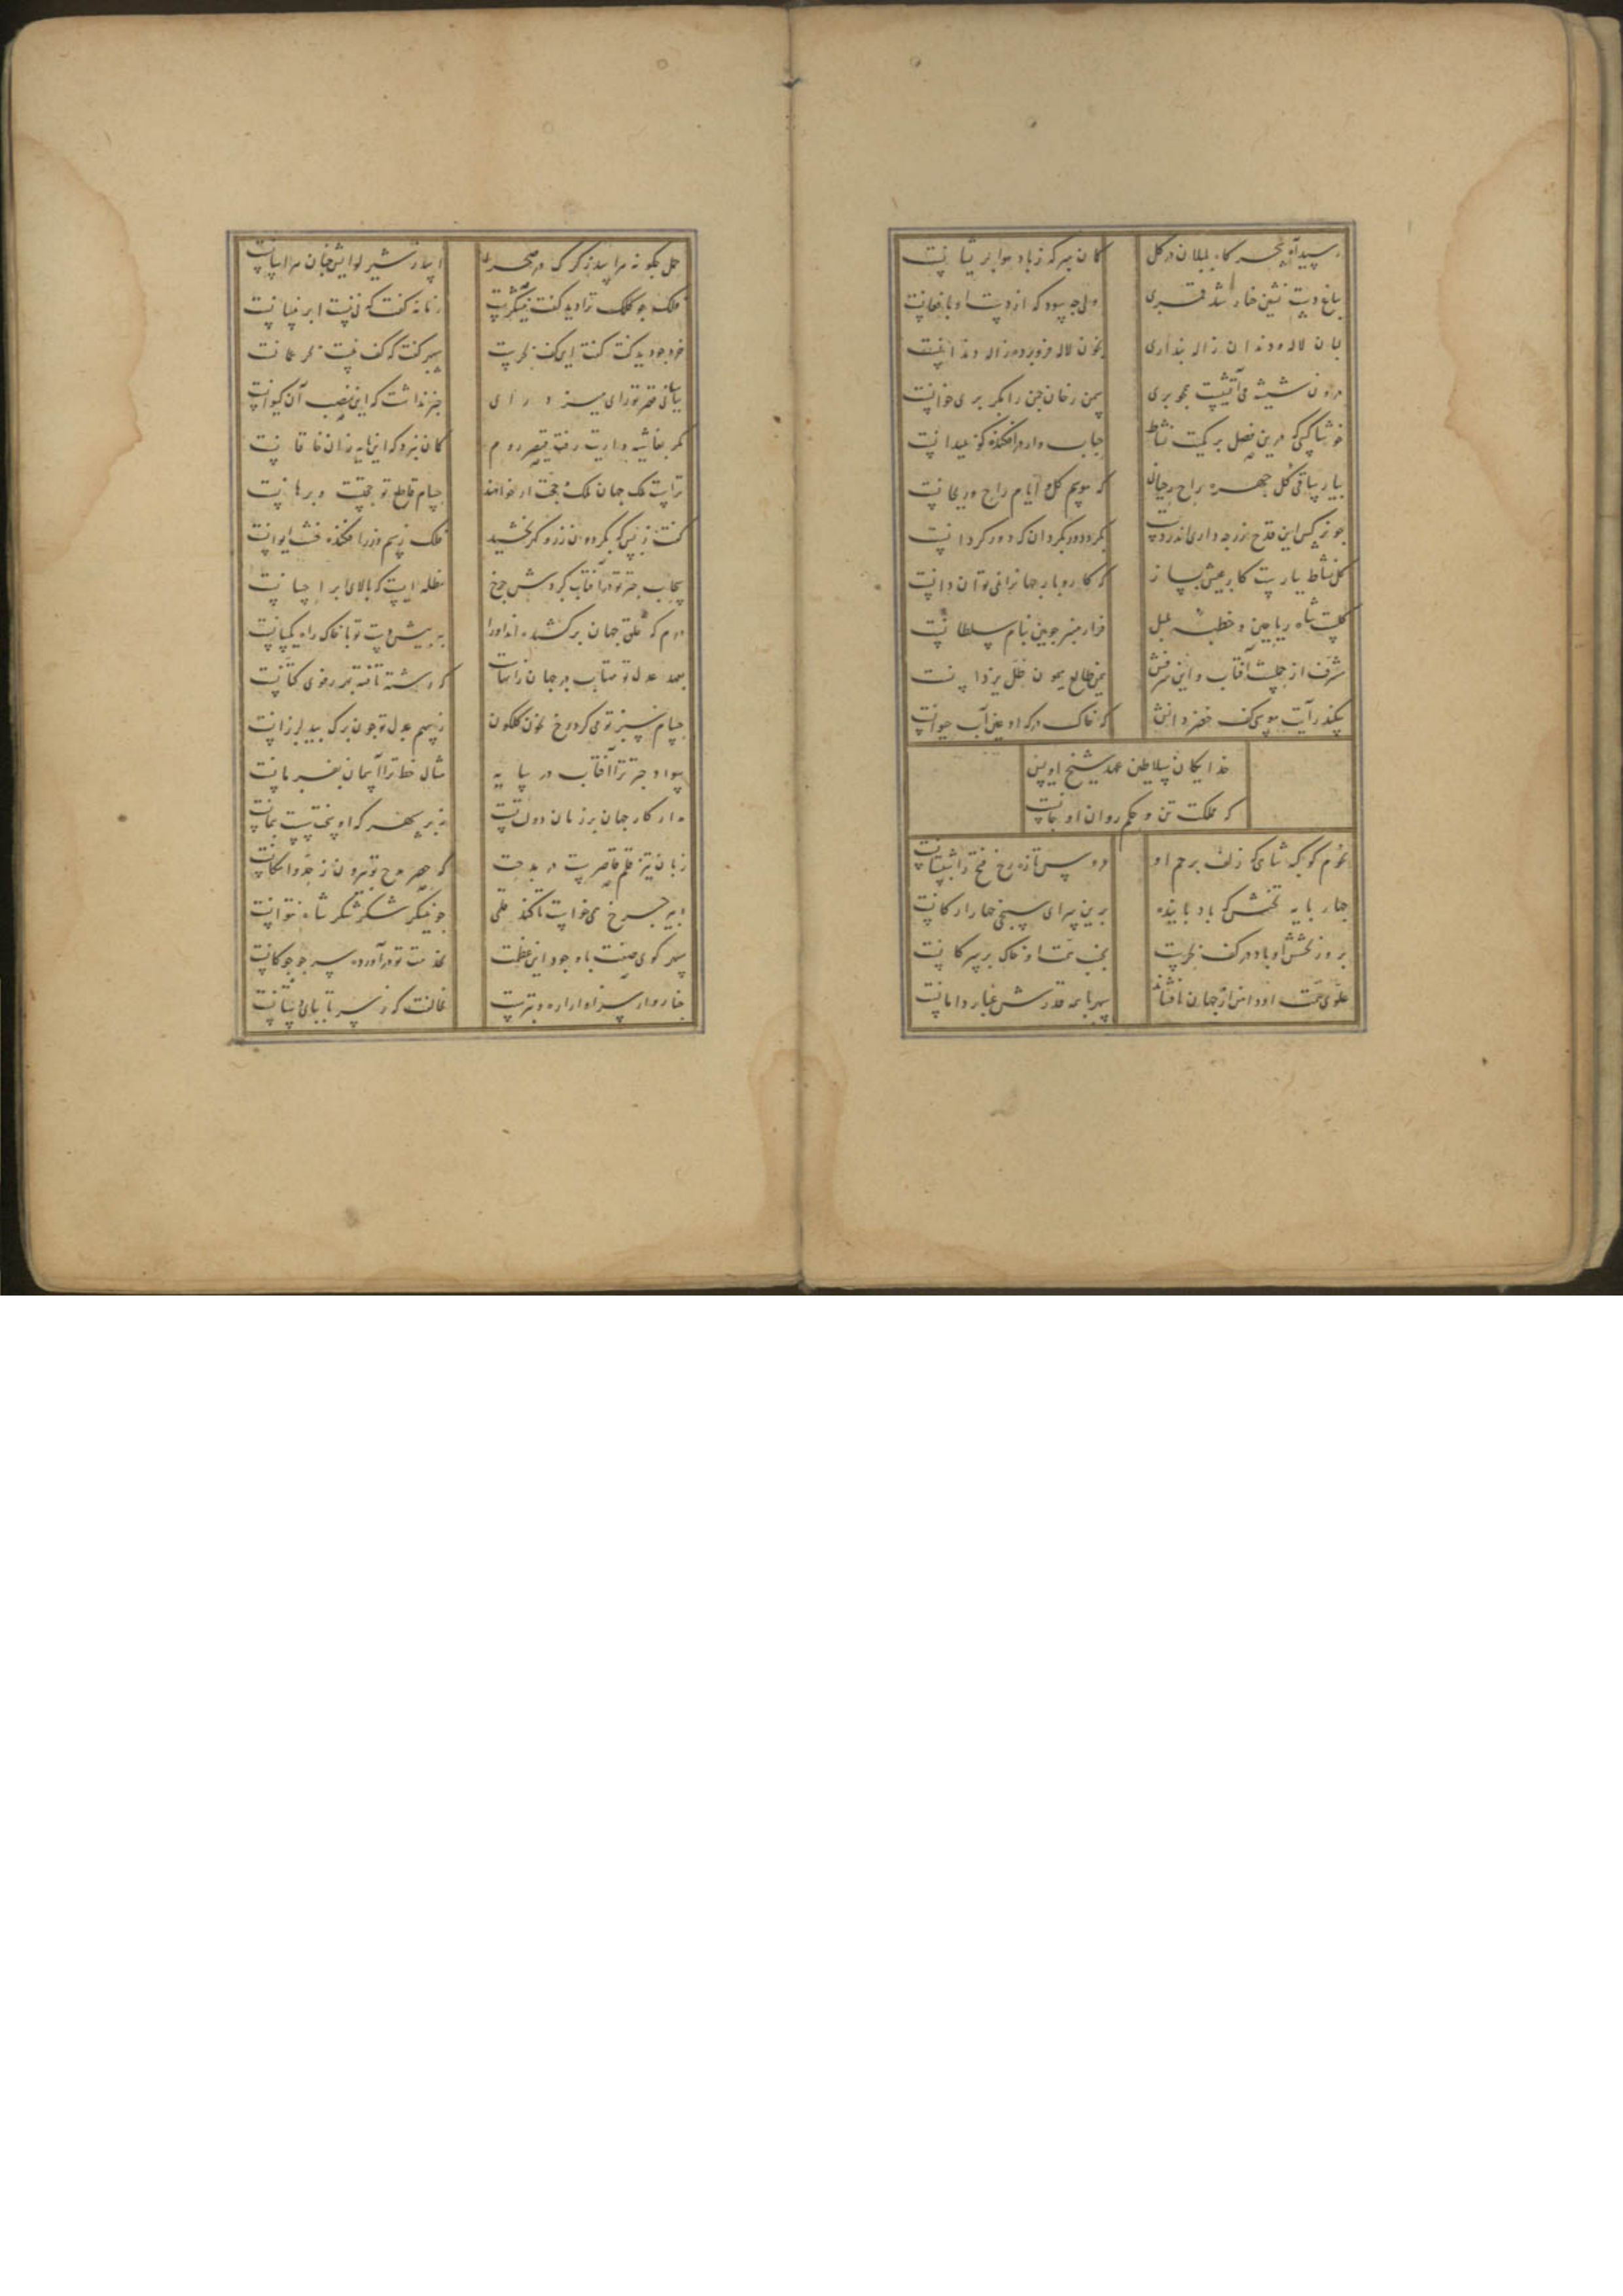 رسید آه سحرگاه بلبلان در گل
گمان مبر که زباد هوا پریشانست
بباغ دست نشین خار شد قمری
ولی چه سود که از دست او بافغانست
لبان لاله و دندان ژاله پنداری
بخون لاله فرو برده ژاله دندانست
درون شیشه می آتشیست
سمن رخان چمن را مگر پری خوانست
خوشا کسی که درین فصل بر کمیت نشاط
حباب وار در افکنده گو بمیدانست
بیار ساقی گل چهره راح ریحانی
که موسم گل و ایام راح و ریحانست
چو نرگس این قدح زر چه داری اندر دست
بگرد دور بگردان که دور گردانست
گل نشاط ببارست کار عیش بساز
که کار و بار جهان را نمی توان دانست
گلست شاه ریاحین و خطبه بلبل
فراز منبر چوبین بنام سلطانست
شرف از حملست آفتاب و این شرفش
یمن طالع میمون ظل یزدانست
سکندر آیت موسی کف خضر دانش
که خاک درگه او عین آب حیوانست
خدایگان سلاطین عهد شیخ اویس
که مملکت تن و حکم روان او جانست
نجوم کوکب شاهی که زلف پرچم او
عروس تازه رخ فتح را شبستانست
چهار پایه تختش که باد پاینده
برین سرای سپنجی چهار ارکانست
بروز بخشش او باد در کف بحرست
بجنب همت او خاک بر سر کانست
علو همت او دامن از جهان افشاند
سپهر با همه قدرش غبار دامانست
حمل چگونه هراسد ز گرگ در صحرا
اسد ز شیر لوایش چنان هراسانست
فلک چو کلک ترا دید گفت نیشکرست
زمانه گفت که نی نیست ابر نیسانست
خرد چو دید کفت گفت این کف بحرست
سپهر گفت که کف نیست بحر عمانست
بپاسبانی قصر تو رای میزد رای
خبر نداشت که این منصب آن کیوانست
مگر بغاشیه داریت رفت قیصر روم
گمان نبرد که این پایه زان خاقانست
تراست ملک جهان ملک و حجت ار خواهند
حسام قاطع تو حجتست و برهانست
کفت ز بس که بگردون زر و گهر بخشید
فلک ز سیم و زر افکنده خشت ایوانست
سحاب چتر تو در آفتاب گردش چرخ
مظله ایست که بالای ابر احسانست
درم که خلق جهان بر کشیده اند او را
به پیش دست تو با خاک راه یکسانست
بعهد عدل تو مهتاب در جهان زانسان
که رشته تافته بهر رفوی کتانست
حسام سبز تو می کرد رخ بخون گلگون
ز سهم عدل تو چون برگ بید لرزانست
سواد چتر ترا آفتاب در سایه
مثال خط ترا آسمان بفرمانست
مدار کار جهان بر زمان دولت تست
نه بر سپهر که او نیز سخت سست پیمانست
زبان تیز قلم قاصرست در مدحت
که حصر مدح تو بیرون ز حد امکانست
دبیر چرخ همی خواست تا کند قلمی
چو نیشکر شکر شکر شاه نتوانست
سپهر گوی صفت با وجود این عظمت
بخدمت تو در آورده سر چو چوگانست
حناروار سزاوار اره و تبرست
مخالفت که ز سر تا بپای دستانست